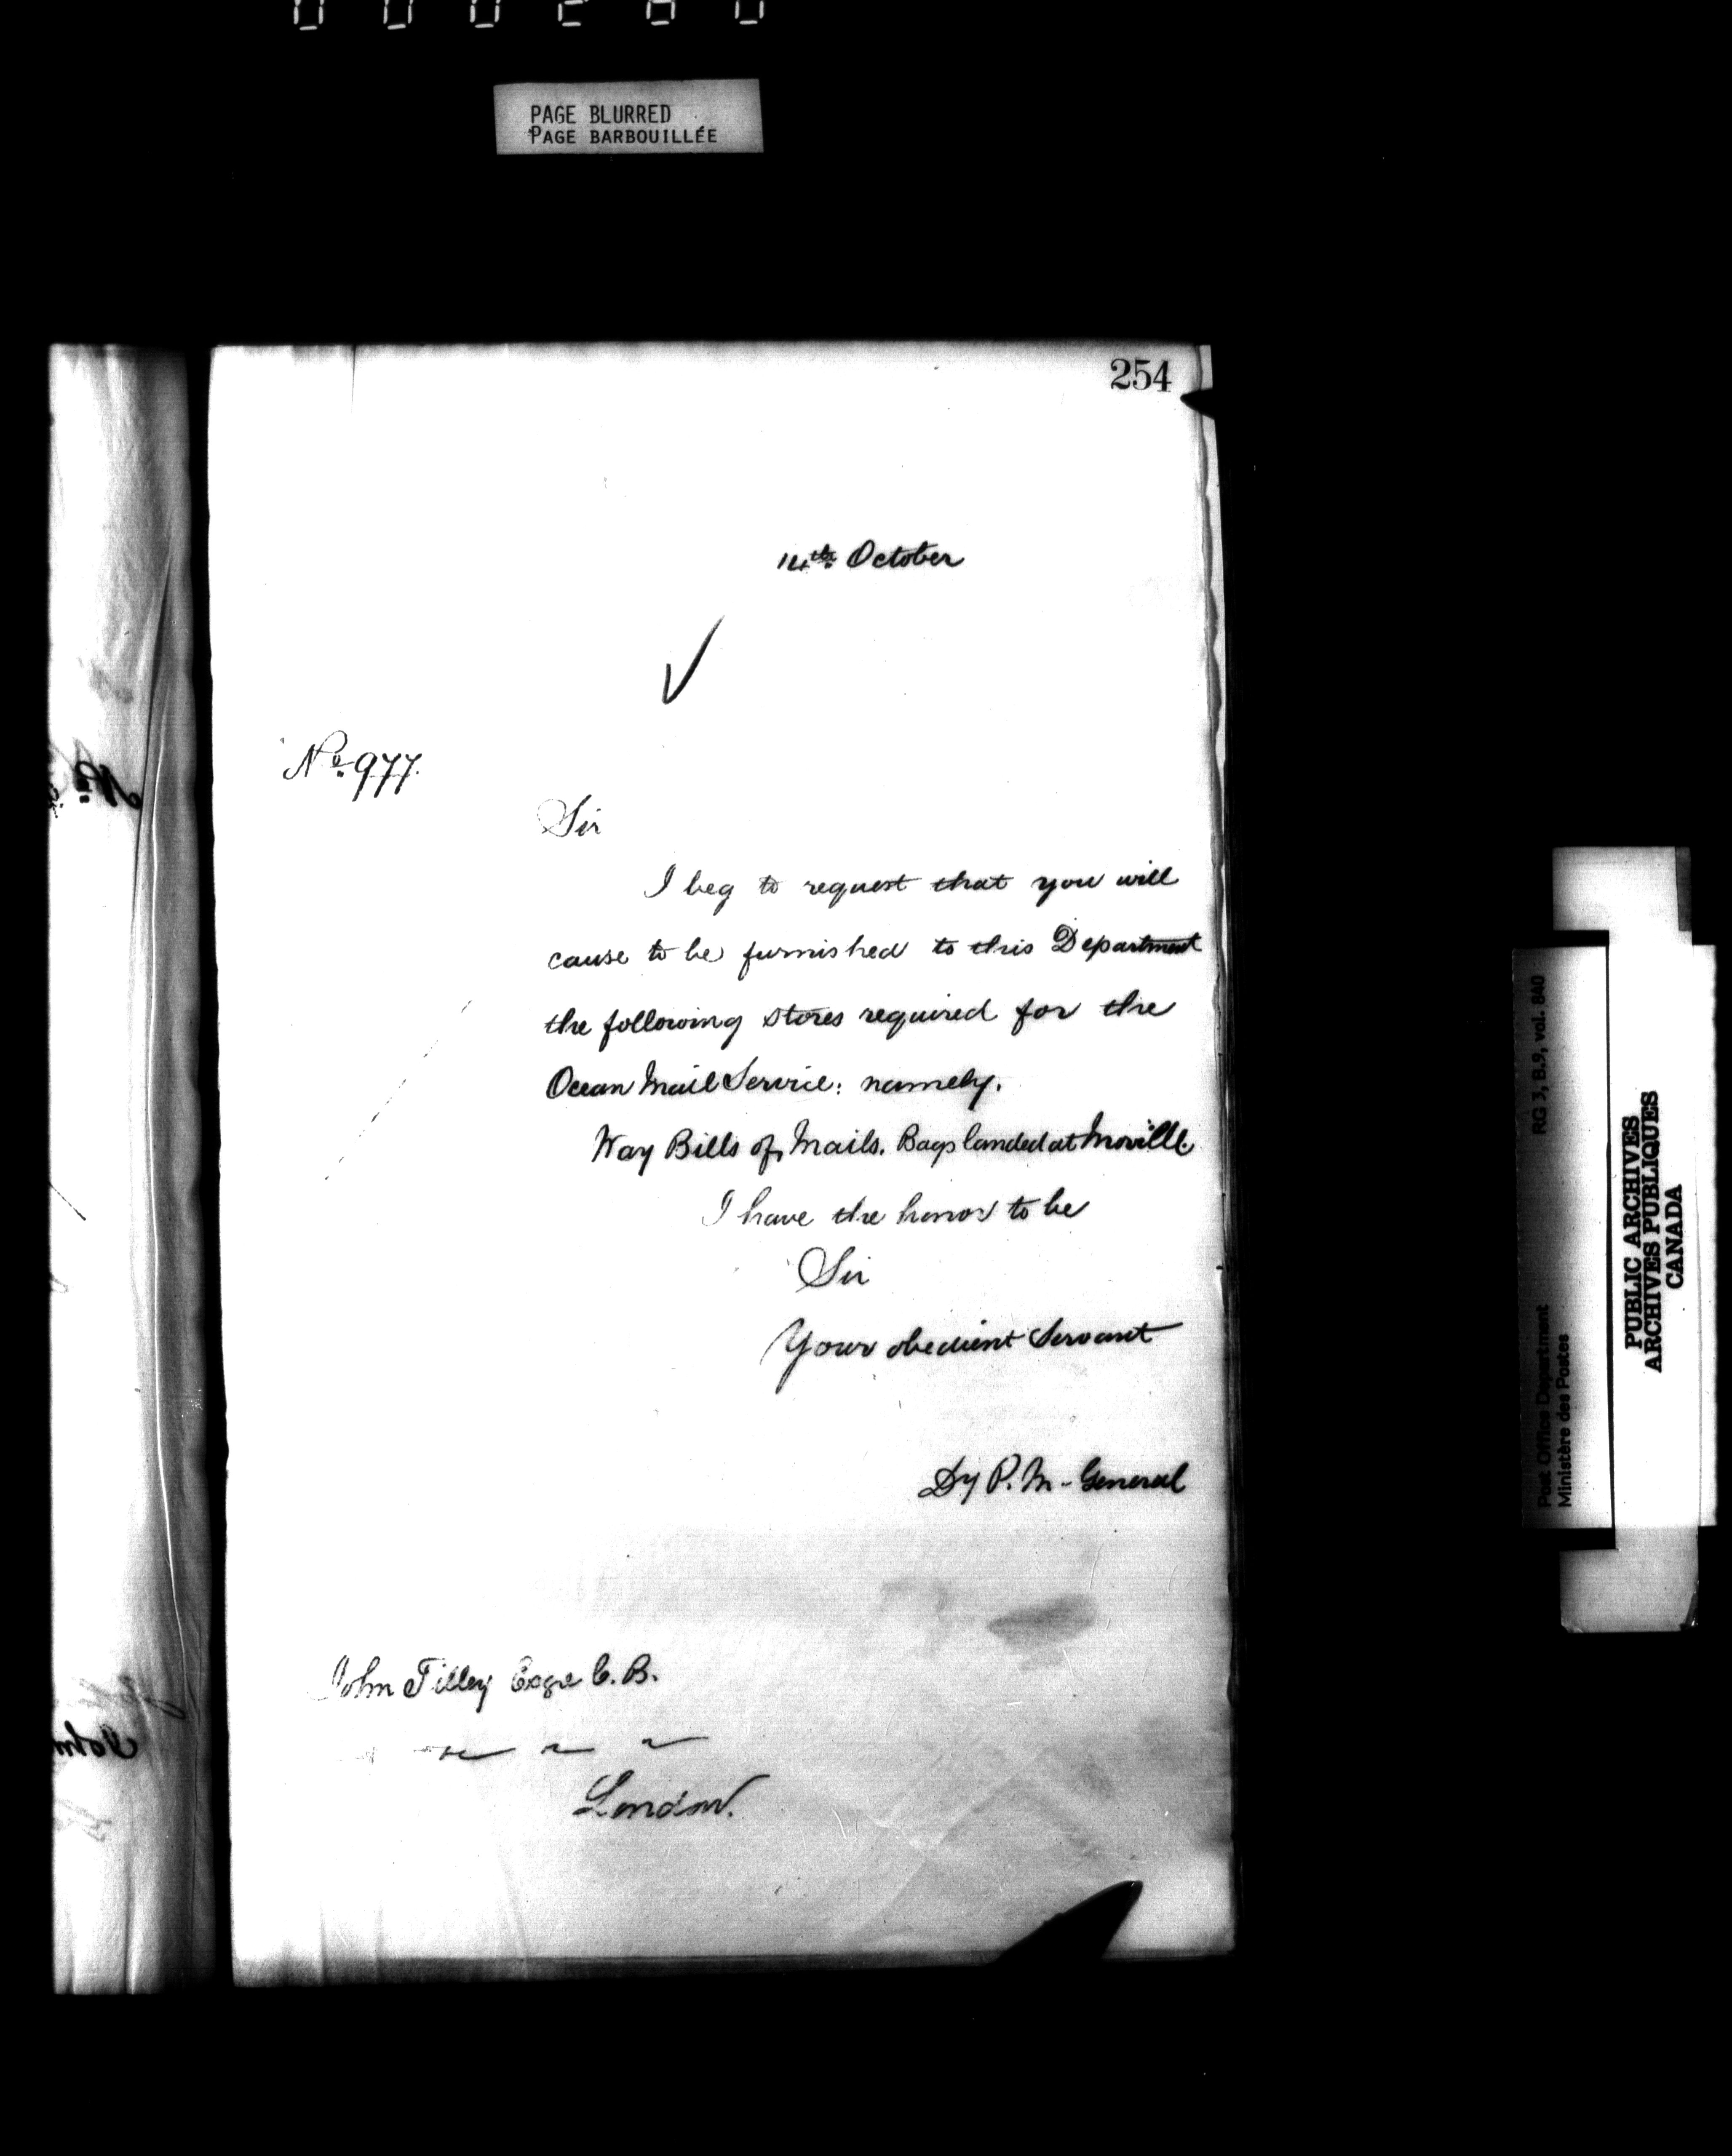 PAGE BLURRED
PAGE BARBOUILLÉE
254
14th October
No. 977.
Sir
I beg to request that you will
cause to be furnished to this Department
the following stores required for the
Ocean Mail Service: namely.
Way Bills of Mails. Bags landed at Moville.
I have the honor to be
Sir
Your obedient Servant
Dy P. M - General
John Tilley Esqre C. B.
London.
RG 3, B.9, vol. 840
Post Office Department
Ministère des Postes
PUBLIC ARCHIVES
ARCHIVES PUBLIQUES
CANADA